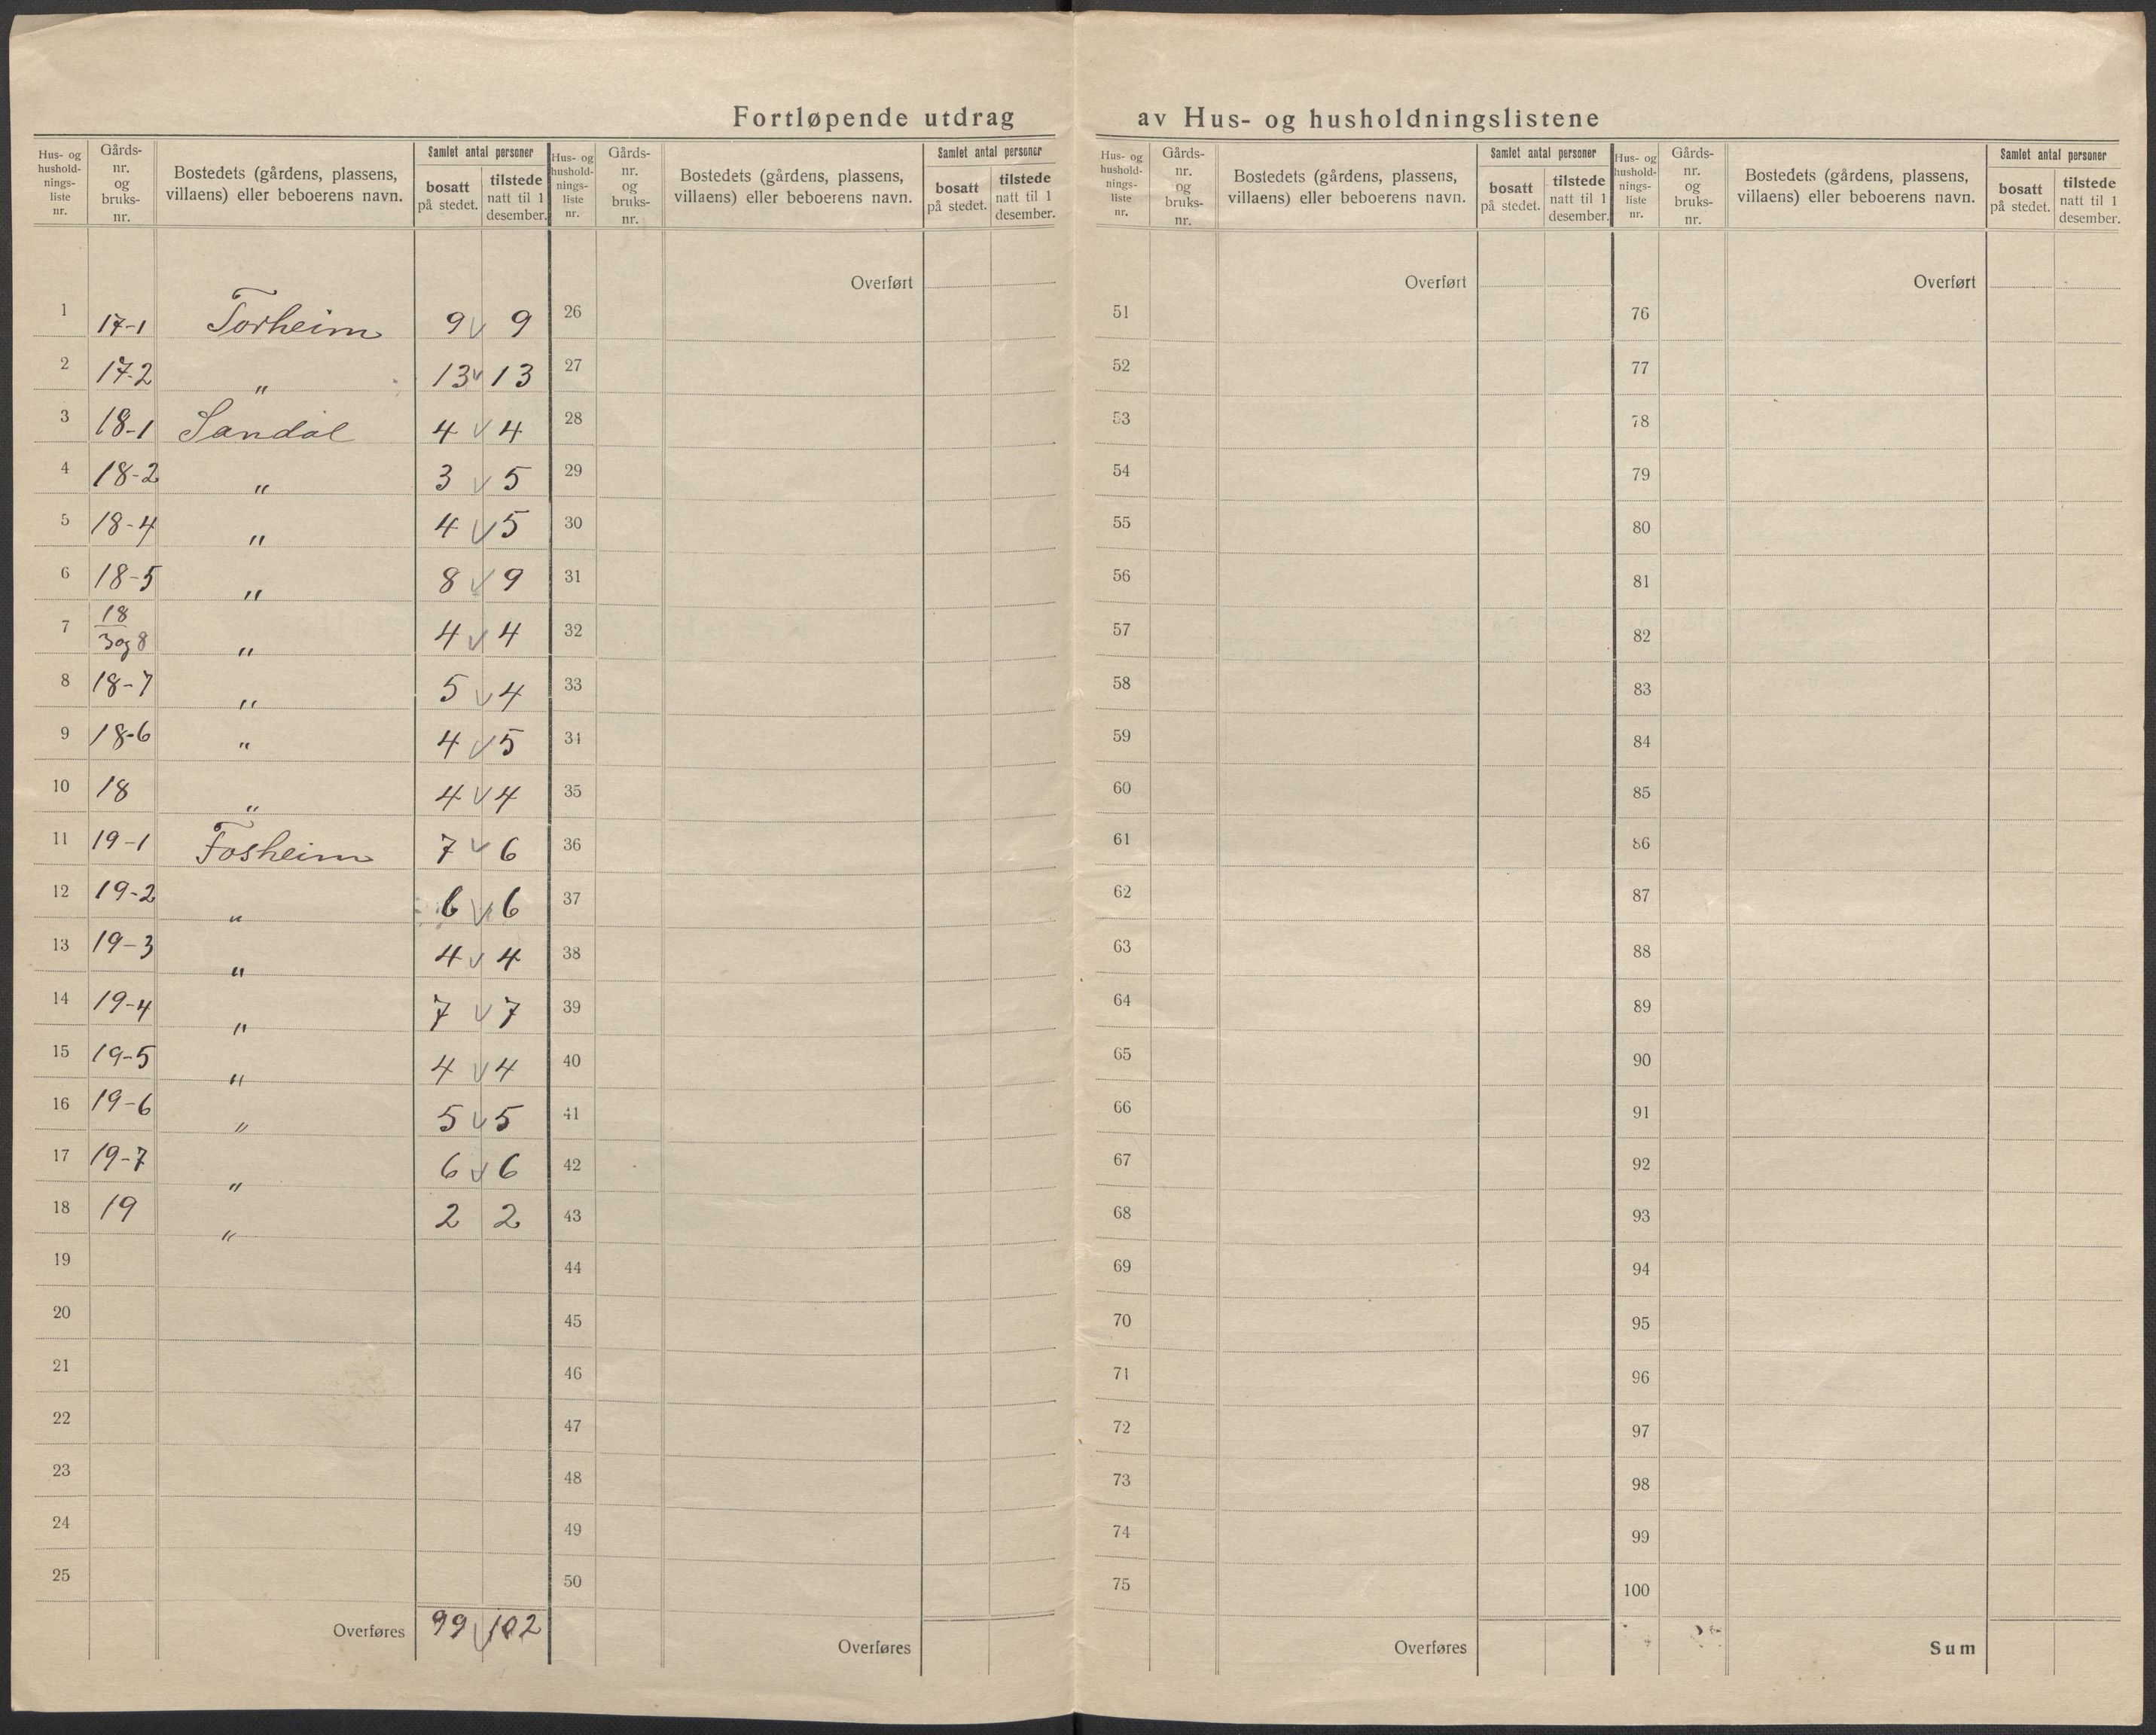 Fortløpende utdrag av Hus- og husholdningslistene
Hus- og hushold-nings-liste nr. Gårds-nr. og bruks-nr. Bostedets (gårdens, plassens, villaens) eller beboerens navn. Samlet antal personer bosatt på stedet. tilstede natt til 1 desember.
1 17-1 Torheim 9 v 9
2 17-2 " 13 v 13
3 18-1 Sandal 4 v 4
4 18-2 " 3 v 5
5 18-4 " 4 v 5
6 18-5 " 8 v 9
7 18/3 og 8 " 4 v 4
8 18-7 " 5 v 4
9 18-6 " 4 v 5
10 18 " 4 v 4
11 19-1 Fosheim 7 v 6
12 19-2 " 6 v 6
13 19-3 " 4 v 4
14 19-4 " 7 v 7
15 19-5 " 4 v 4
16 19-6 " 5 v 5
17 19-7 " 6 v 6
18 19 " 2 2
19
20
21
22
23
24
25
Overføres 99 v 102
Hus- og hushold-nings-liste nr. Gårds-nr. og bruks-nr. Bostedets (gårdens, plassens, villaens) eller beboerens navn. Samlet antal personer bosatt på stedet. tilstede natt til 1 desember.
Overført
26
27
28
29
30
31
32
33
34
35
36
37
38
39
40
41
42
43
44
45
46
47
48
49
50
Overføres
Hus- og hushold-nings-liste nr. Gårds-nr. og bruks-nr. Bostedets (gårdens, plassens, villaens) eller beboerens navn. Samlet antal personer bosatt på stedet. tilstede natt til 1 desember.
Overført
51
52
53
54
55
56
57
58
59
60
61
62
63
64
65
66
67
68
69
70
71
72
73
74
75
Overføres
Hus- og hushold-nings-liste nr. Gårds-nr. og bruks-nr. Bostedets (gårdens, plassens, villaens) eller beboerens navn. Samlet antal personer bosatt på stedet. tilstede natt til 1 desember.
Overført
76
77
78
79
80
81
82
83
84
85
86
87
88
89
90
91
92
93
94
95
96
97
98
99
100
Sum